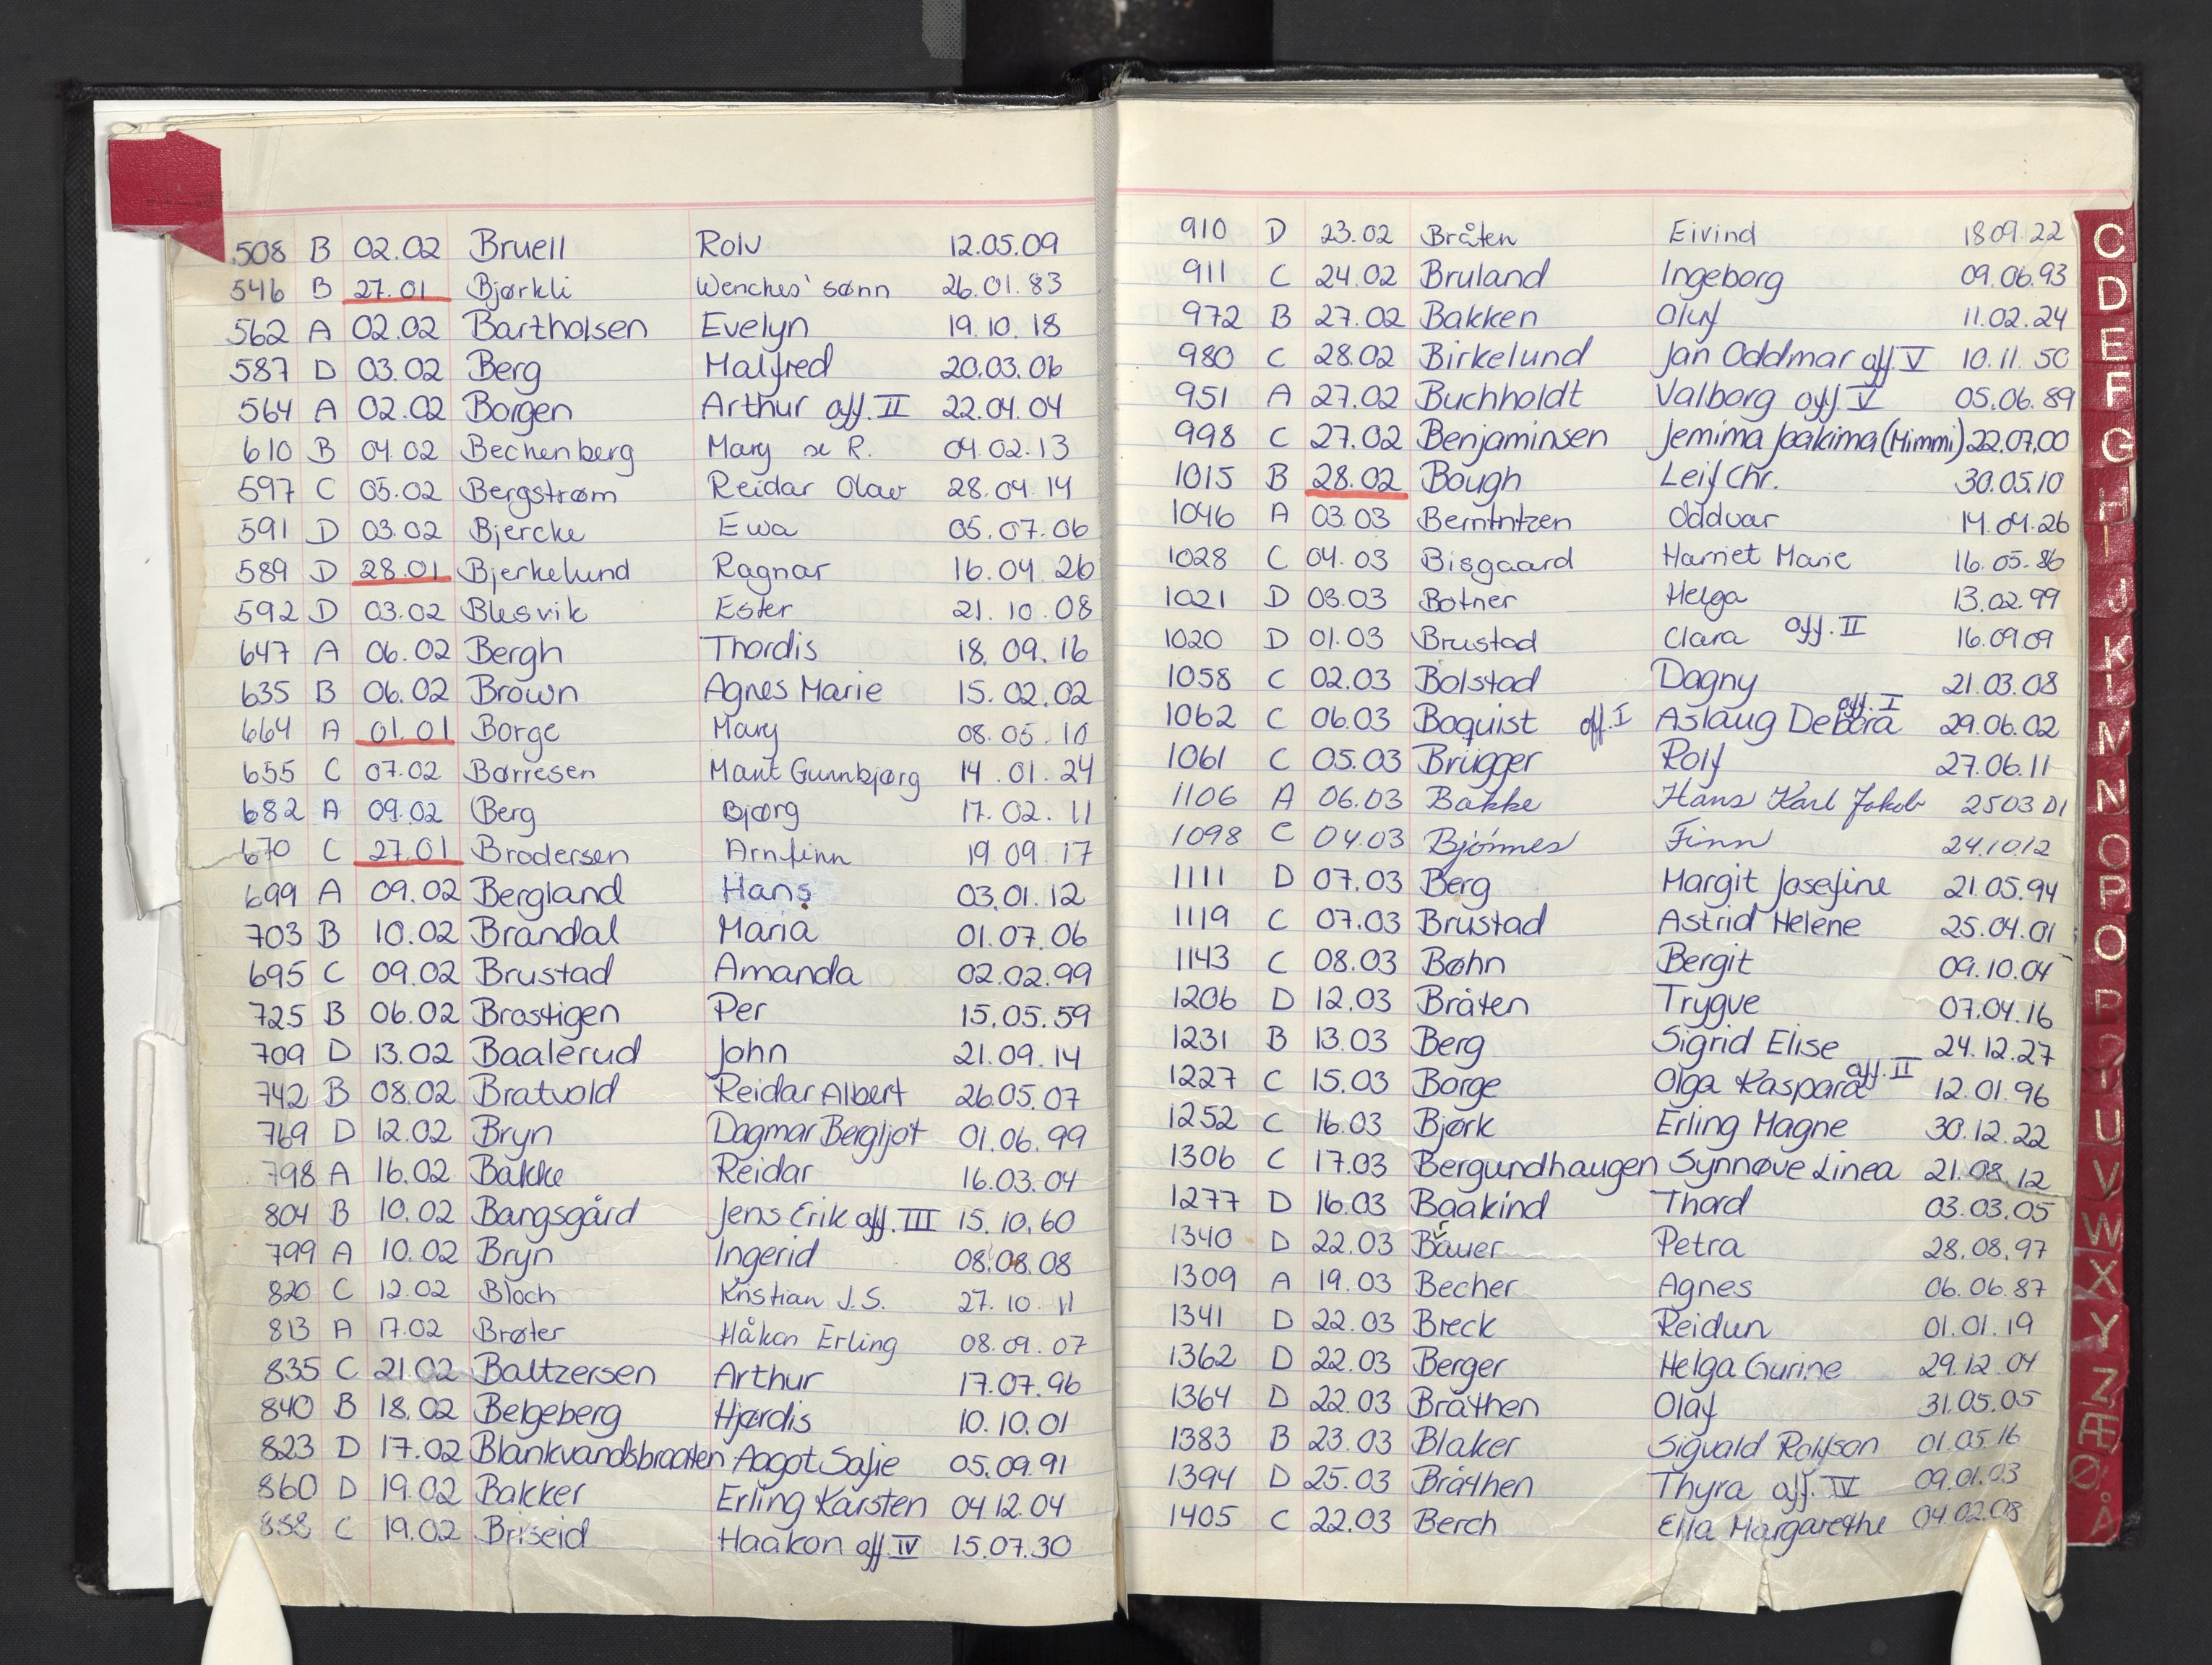 508 B 02.02 Bruell Rolv 12.05.09
546 B 27.01 Bjørkli Wenches' sønn 26.01.83
562 A 02.02 Bartholsen Evelyn 19.10.18
587 D 03.02 Berg Malfred 20.03.06
564 A 02.02 Borgen Arthur aff. II 22.04.04
610 B 04.02 Bechenberg Mary se R. 04.02.13
597 C 05.02 Bergstrøm Reidar Olav 28.04.14
591 D 03.02 Bjercke Ewa 05.07.06
589 D 28.01 Bjerkelund Ragnar 16.04.26
592 D 03.02 Blesvik Ester 21.10.08
647 A 06.02 Bergh Thordis 18.09.16
635 B 06.02 Brown Agnes Marie 15.02.02
664 A 01.01 Borge Mary 08.05.10
655 C 07.02 Børresen Marit Gunnbjørg 14.01.24
682 A 09.02 Berg Bjørg 17.02.11
670 C 27.01 Brodersen Arnfinn 19.09.17
699 A 09.02 Bergland Hans 03.01.12
703 B 10.02 Brandal Maria 01.07.06
695 C 09.02 Brustad Amanda 02.02.99
725 B 06.02 Brostigen Per 15.05.59
709 D 13.02 Baalerud John 21.09.14
742 B 08.02 Bratvold Reidar Albert 26.05.07
769 D 12.02 Bryn Dagmar Bergljot 01.06.99
798 A 16.02 Bakke Reidar 16.03.04
804 B 10.02 Bangsgård Jens Erik aff. III 15.10.60
799 A 10.02 Bryn Ingerid 08.08.08
820 C 12.02 Bloch Kristian J.S. 27.10.11
813 A 17.02 Brøter Håkon Erling 08.09.07
835 C 21.02 Baltzersen Arthur 17.07.96
840 B 18.02 Belgeberg Hjørdis 10.10.01
823 D 17.02 Blankvandsbraaten Aagot Sofie 05.09.91
860 D 19.02 Bakker Erling Karsten 04.12.04
858 C 19.02 Briseid Haakon aff. IV 15.07.30
910 D 23.02 Bråten Eivind 18.09.22
911 C 24.02 Bruland Ingeborg 09.06.93
972 B 27.02 Bakken Oluf 11.02.24
980 C 28.02 Birkelund Jan Oddmar aff. V 10.11.50
951 A 27.02 Buchholdt Valborg aff. V 05.06.89
998 C 27.02 Benjaminsen Jemima Joakima (Mimmi) 22.07.00
1015 B 28.02 Bough Leif Chr. 30.05.10
1046 A 03.03 Berntntzen Oddvar 14.04.26
1028 C 04.03 Bisgaard Harriet Marie 16.05.86
1021 D 03.03 Botner Helga 13.02.99
1020 D 01.03 Brustad Clara aff. II 16.09.09
1058 C 02.03 Bolstad Dagny 21.03.08
1062 C 06.03 Boquist aff. I Aslaug Debora aff. I 29.06.02
1061 C 05.03 Brügger Rolf 27.06.11
1106 A 06.03 Bakke Hans Karl Jakob 25 03 01
1098 C 04.03 Bjønnes Finn 24.10.12
1111 D 07.03 Berg Margit Josefine 21.05.94
1119 C 07.03 Brustad Astrid Helene 25.04.01
1143 C 08.03 Bøhn Bergit 09.10.04
1206 D 12.03 Bråten Trygve 07.04.16
1231 B 13.03 Berg Sigrid Elise 24.12.27
1227 C 15.03 Borge Olga Kaspara aff. II 12.01.96
1252 C 16.03 Bjørk Erling Magne 30.12.22
1306 C 17.03 Bergundhaugen Synnøve Linea 21.08.12
1277 D 16.03 Baakind Thord 03.03.05
1340 D 22.03 Bauer Petra 28.08.97
1309 A 19.03 Becher Agnes 06.06.87
1341 D 22.03 Breck Reidun 01.01.19
1362 D 22.03 Berger Helga Gurine 29.12.04
1364 D 22.03 Bråthen Olaf 31.05.05
1383 B 23.03 Blaker Sigvald Rolfson 01.05.16
1394 D 25.03 Bråthen Thyra aff. IV 09.01.03
1405 C 22.03 Berch Ella Margarethe 04.02.08
C
D
E
F
G
H
I
J
K
L
M
N
O
P
Q
R
U
V
W
X
Y
Z
Æ
Ø
Å